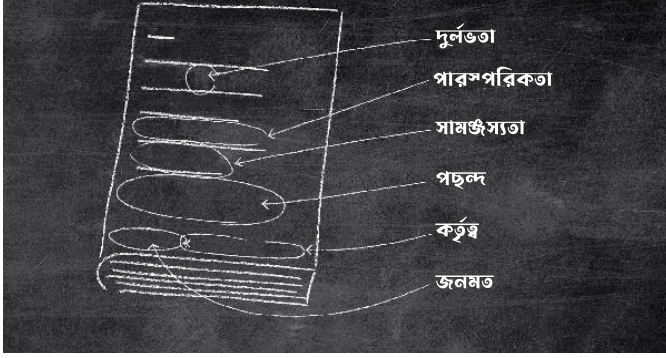 দুর্লভতা
পারস্পরিকতা
সামঞ্জস্যতা
পছন্দ
কর্তৃত্ব
জনমত